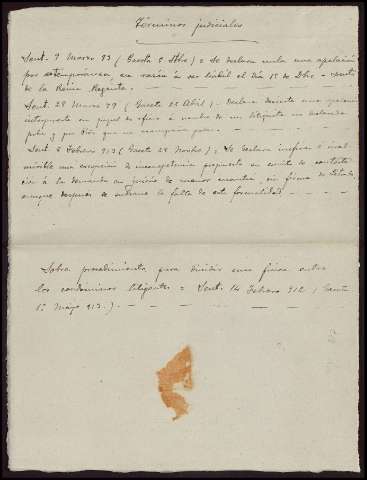 Términos judiciales
Sent. 9 Marzo 93 (Gaceta 2 Stbre) = Se declara nula una apelación
por extemporánea, en razón á ser hábil el día 1º de Dbre - santo
de la Reina Regente. -
Sent. 28 Marzo 99 (Gaceta 25 Abril) - Declara desierta una
en papel de oficio á nombre de un litigante no declarado
pobre y que
Sent. 8 Febrero 913 (Gaceta 28 Novbre) = Se declara ineficaz é inad
misible una excepción de incompetencia propuesta en escrito de contesta
ción á la demanda en juicio de menor cuantía, sin firma de Letrado,
aunque después se subsane la falta de esta formalidad -
Sobre procedimiento para dividir una finca entre
los condominos litigantes = Sent. 14 Febrero 912 (Gaceta
1º Mayo 913.) -